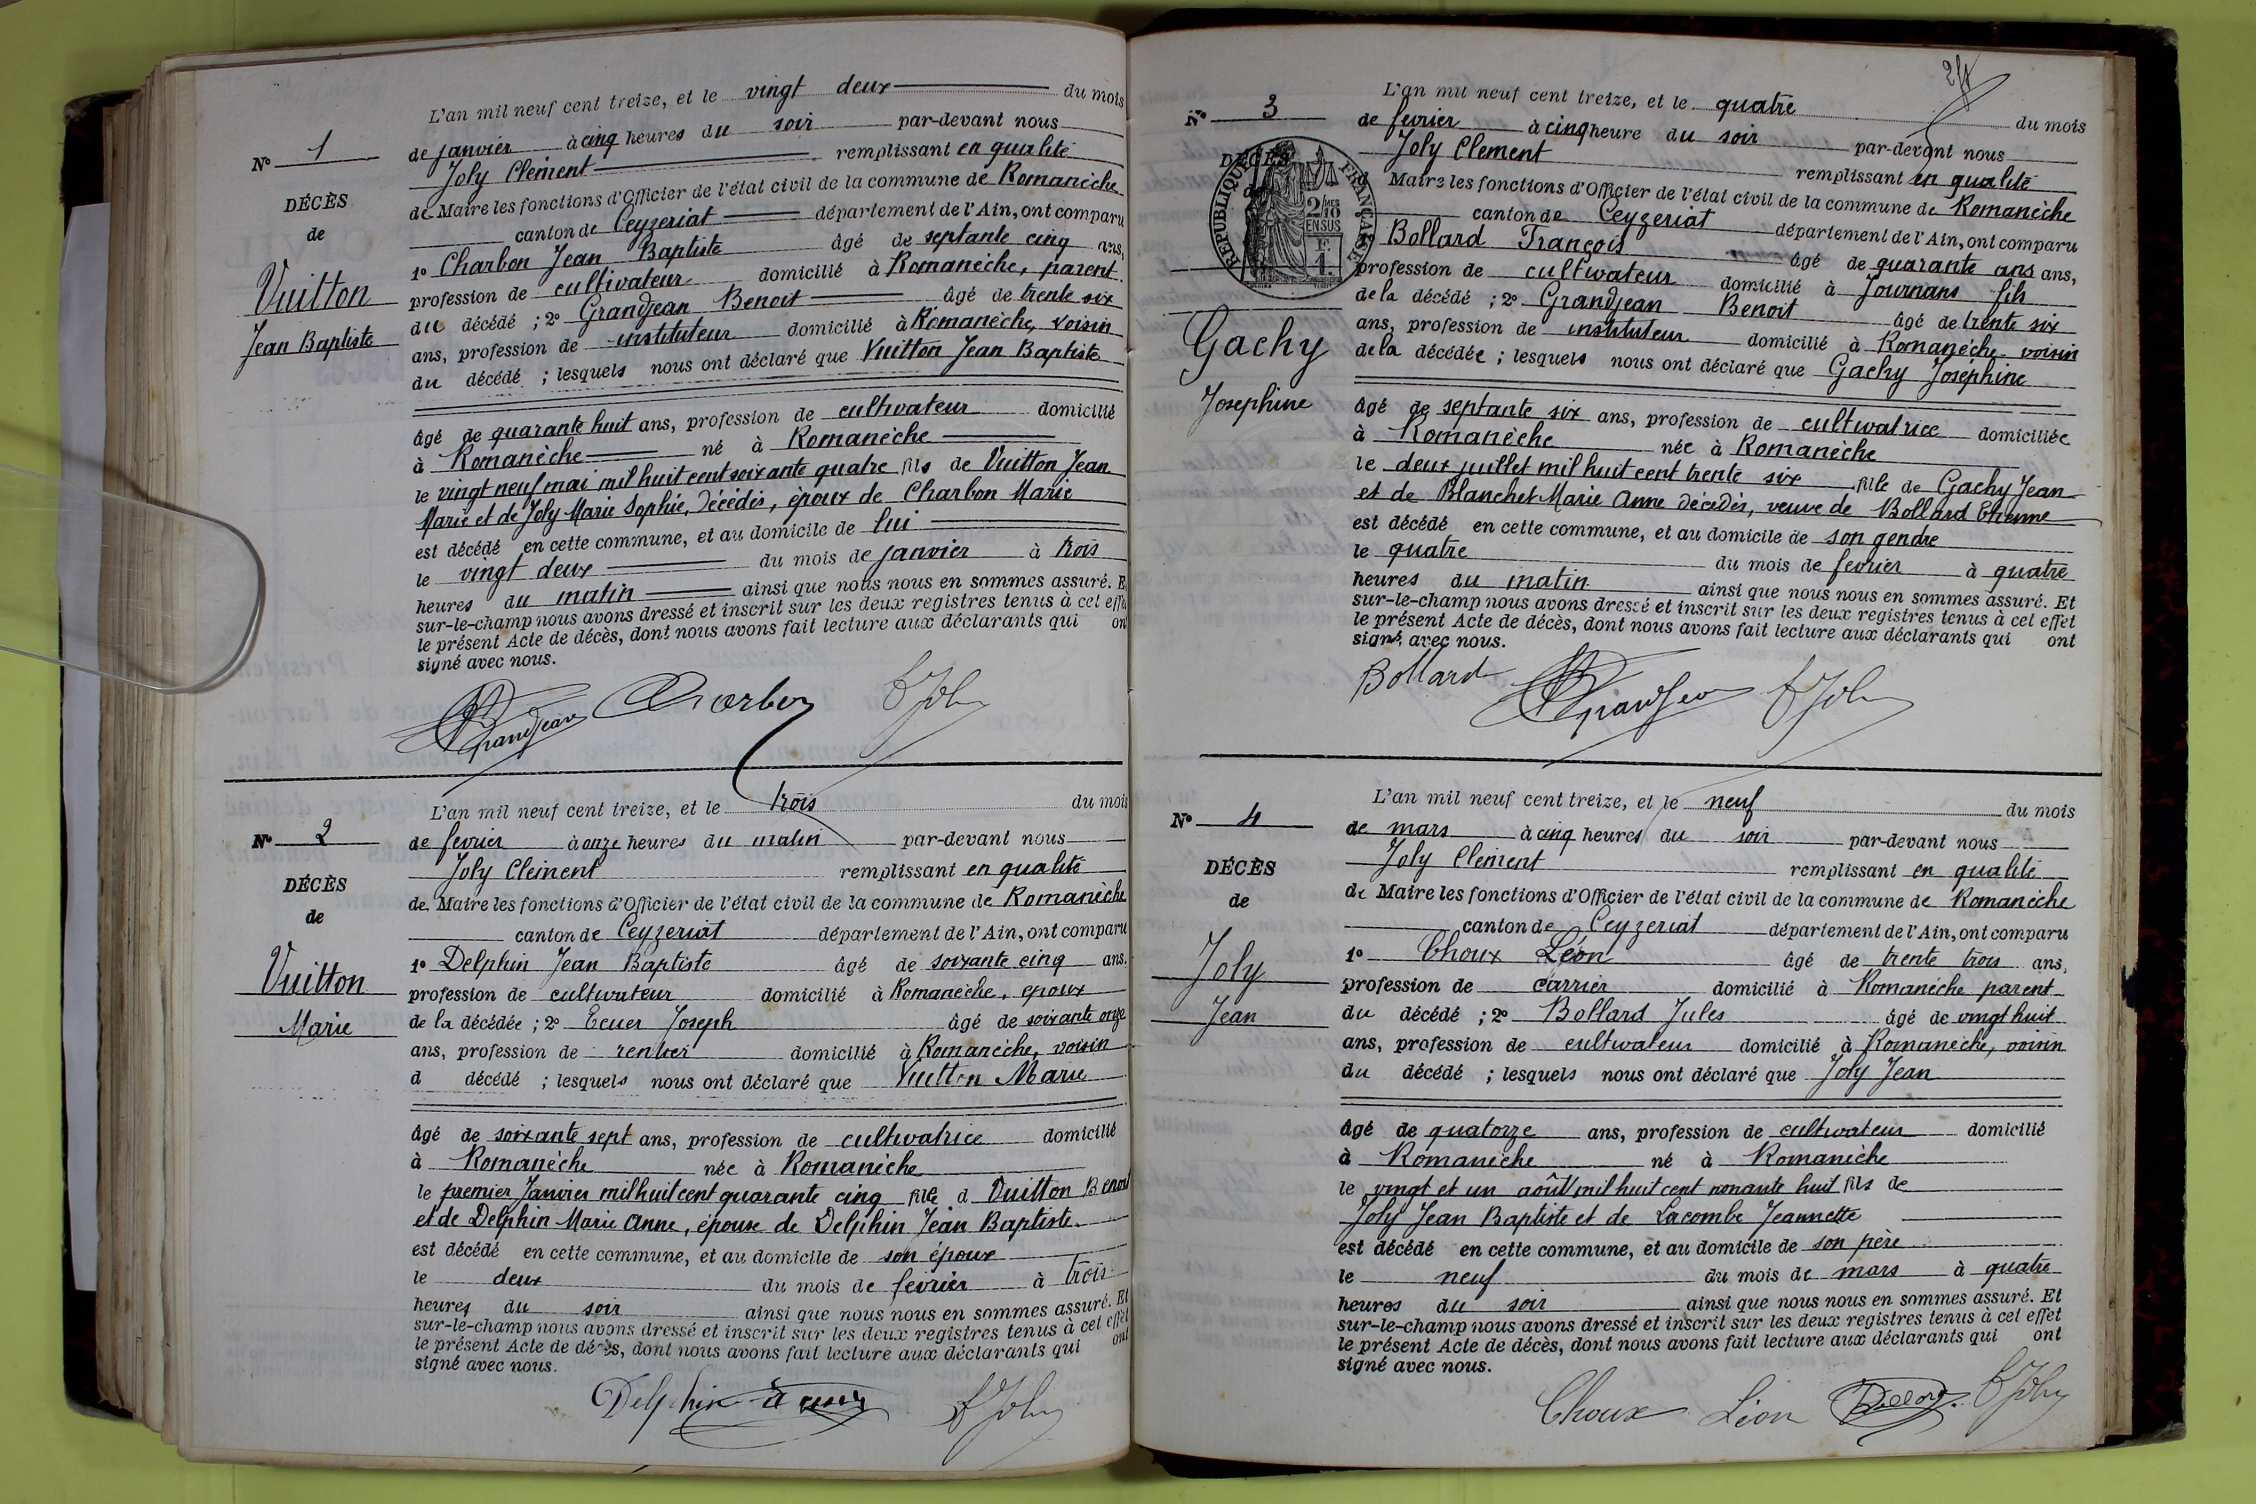 L'an mil neuf cent treize, et le vingt deux du mois
de janvier à cinq heures du soir par-devant nous
Joly Clément remplissant en qualité
de Maire les fonctions d'Officier de l'état civil de la commune de Romanèche
canton de Ceyzeriat département de l'Ain, ont comparu
1º Charbon Jean Baptiste âgé de septante cinq ans,
profession de cultivateur domicilié à Romanèche, parent
du décédé ; 2º Grandjean Benoit âgé de trente six
ans, profession de instituteur domicilié à Romanèche, voisin
du décédé ; lesquels nous ont déclaré que Vuitton Jean Baptiste
âgé de quarante huit ans, profession de cultivateur domicilié
à Romanèche né à Romanèche
le vingt neuf mai mil huit cent soixante quatre fils de Vuitton Jean
Marie et de Joly Marie Sophie, décédés, époux de Charbon Marie
est décédé en cette commune, et au domicile de lui
le vingt deux du mois de janvier à trois
heures du matin ainsi que nous nous en sommes assuré. E
sur-le-champ nous avons dressé et inscrit sur les deux registres tenus à cet effe
le présent Acte de décès, dont nous avons fait lecture aux déclarants qui on
signé avec nous.
Nº 1
DÉCÈS
de
Vuitton
Jean Baptiste
Grandjean Charbon C Joly
L'an mil neuf cent treize, et le trois du mois
de fevrier à onze heures du matin par-devant nous
Joly Clément remplissant en qualité
de Maire les fonctions d'Officier de l'état civil de la commune de Romanèche
canton de Ceyzeriat département de l'Ain, ont comparu
1º Delphin Jean Baptiste âgé de soixante cinq ans.
profession de cultivateur domicilié à Romanèche, epoux
de la décédée ; 2º Ecuer Joseph âgé de soixante onze
ans, profession de rentier domicilié à Romanèche, voisin
d décédé ; lesquels nous ont déclaré que Vuitton Marie
âgé de soixante sept ans, profession de cultivatrice domicilié
à Romanèche née à Romanèche
le premier Janvier mil huit cent quarante cinq fille d Vuitton Benoit
et de Delphin Marie Anne, épouse de Delphin Jean Baptiste
est décédé en cette commune, et au domicile de son époux
le deux du mois de fevrier à trois
heures du soir ainsi que nous nous en sommes assuré. Et
sur-le-champ nous avons dressé et inscrit sur les deux registres tenus à cet effet
le présent Acte de décès, dont nous avons fait lecture aux déclarants qui ont
signé avec nous.
Nº 2
DÉCÈS
de
Vuitton
Marie
Delphin C Joly
L'an mil neuf cent treize, et le quatre du mois
de fevrier à cinq heure du soir par-devant nous
Joly Clement remplissant en qualité
d Maire les fonctions d'Officier de l'état civil de la commune de Romanèche
canton de Ceyzeriat département de l'Ain, ont comparu
Bollard François âgé de quarante ans ans,
profession de cultivateur domicilié à Journans fils
de la décédé ; 2º Grandjean Benoit âgé de trente six
ans, profession de instituteur domicilié à Romanèche voisin
de la décédée ; lesquels nous ont déclaré que Gachy Joséphine
âgé de septante six ans, profession de cultivatrice domiciliée
à Romanèche née à Romanèche
le deux juillet mil huit cent trente six fille de Gachy Jean
et de Blanchet Marie Anne décédés, veuve de Bollard Etienne
est décédé en cette commune, et au domicile de son gendre
le quatre du mois de fevrier à quatre
heures du matin ainsi que nous nous en sommes assuré. Et
sur-le-champ nous avons dressé et inscrit sur les deux registres tenus à cet effet
le présent Acte de décès, dont nous avons fait lecture aux déclarants qui ont
signé avec nous.
Nº 3
DÉCÈS
RÉPUBLIQUE FRANÇAISE
2/10
EN SUS
1 F.
Gachy
Josephine
Bollard Grandjean C Joly
L'an mil neuf cent treize, et le neuf du mois
de mars à cinq heures du soir par-devant nous
Joly Clément remplissant en qualité
de Maire les fonctions d'Officier de l'état civil de la commune de Romanèche
canton de Ceyzeriat département de l'Ain, ont comparu
1º Choux Léon âgé de trente trois ans,
profession de carrier domicilié à Romanèche parent
du décédé ; 2º Bollard Jules âgé de vingt huit
ans, profession de cultivateur domicilié à Romanèche, voisin
du décédé ; lesquels nous ont déclaré que Joly Jean
âgé de quatorze ans, profession de cultivateur domicilié
à Romanèche né à Romanèche
le vingt et un août mil huit cent nonante huit fils de
Joly Jean Baptiste et de Lacombe Jeannette
est décédé en cette commune, et au domicile de son père
le neuf du mois de mars à quatre
heures du soir ainsi que nous nous en sommes assuré. Et
sur-le-champ nous avons dressé et inscrit sur les deux registres tenus à cet effet
le présent Acte de décès, dont nous avons fait lecture aux déclarants qui ont
signé avec nous.
Nº 4
DÉCÈS
de
Joly
Jean
Choux Léon C Joly